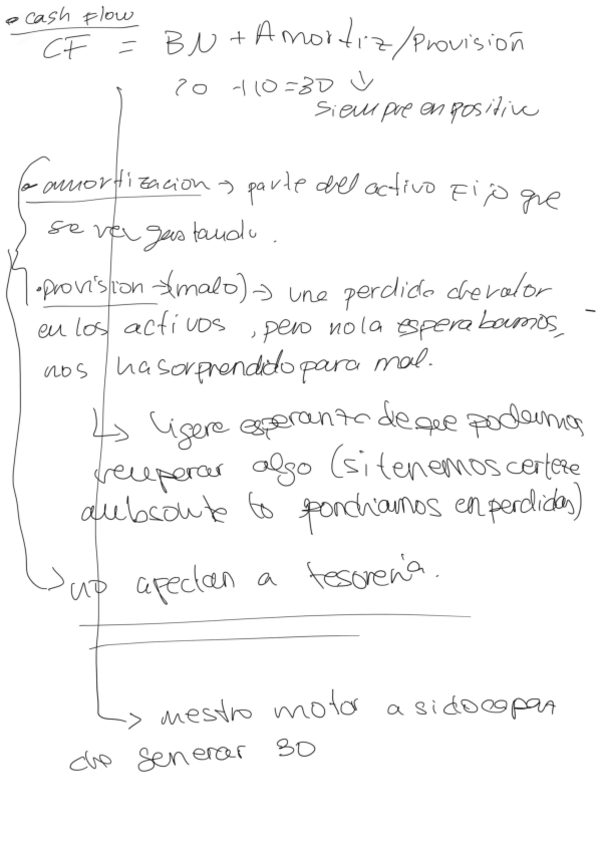 • cash flow
CF = BN + Amortiz/Provisión
20 +10=30 ↓
siempre en positivo
• amortizacion → parte del activo Fijo que
se va gastando.
• provision → (malo) → una perdida de valor
en los activos, pero no la esperabamos,
nos ha sorprendido para mal.
↳ ligera esperanza de que podamos
recuperar algo (si tenemos certeza
absoluta lo pondriamos en perdidas)
→ no afectan a tesoreria.
↳ nuestro motor a sido capaz
de generar 30